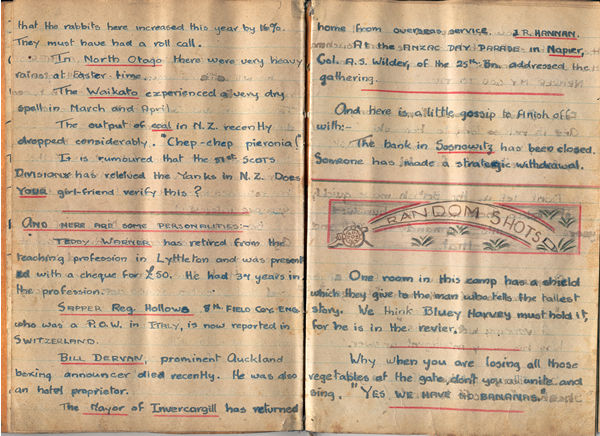 that the rabbits here increased this year by 16%.
They must have had a roll call.
In North Otago there were very heavy
rains at Easter time.
The Waikato experienced a very dry
spell in March and April.
The output of coal in N.Z. recently
dropped considerably. "Chep-chep pieronia!"
It is rumoured that the 51st Scots
Divisions has relieved the Yanks in N.Z. Does
your girl-friend verify this?
And here are some personalities:-
Teddy Warner has retired from the
teaching profession in Lyttleton and was present
ed with a cheque for £50. He had 34 years in
the profession.
Sapper Reg. Hollows 8th Field Coy. Eng.
who was a P.O.W. in Italy, is now reported in
Switzerland.
Bill Dervan, prominent Auckland
boxing announcer died recently. He was also
an hotel proprietor.
The Mayor of Invercargill has returned
home from overseas service. J.R. Hannan.
At the Anzac Day Parade in Napier,
Col. A.S. Wilder, of the 25th Bn. addressed the
gathering.
And here is a little gossip to finish off
with:-
The bank in Sosnowitz has been closed.
Someone has made a strategic withdrawal.
RANDOM SHOTS
One room in this camp has a shield
which they give to the man who tells the tallest
story. We think Bluey Harvey must hold it,
for he is in the revier.
Why when you are losing all those
vegetables at the gate, don't you all unite and
sing. "Yes we have no bananas."